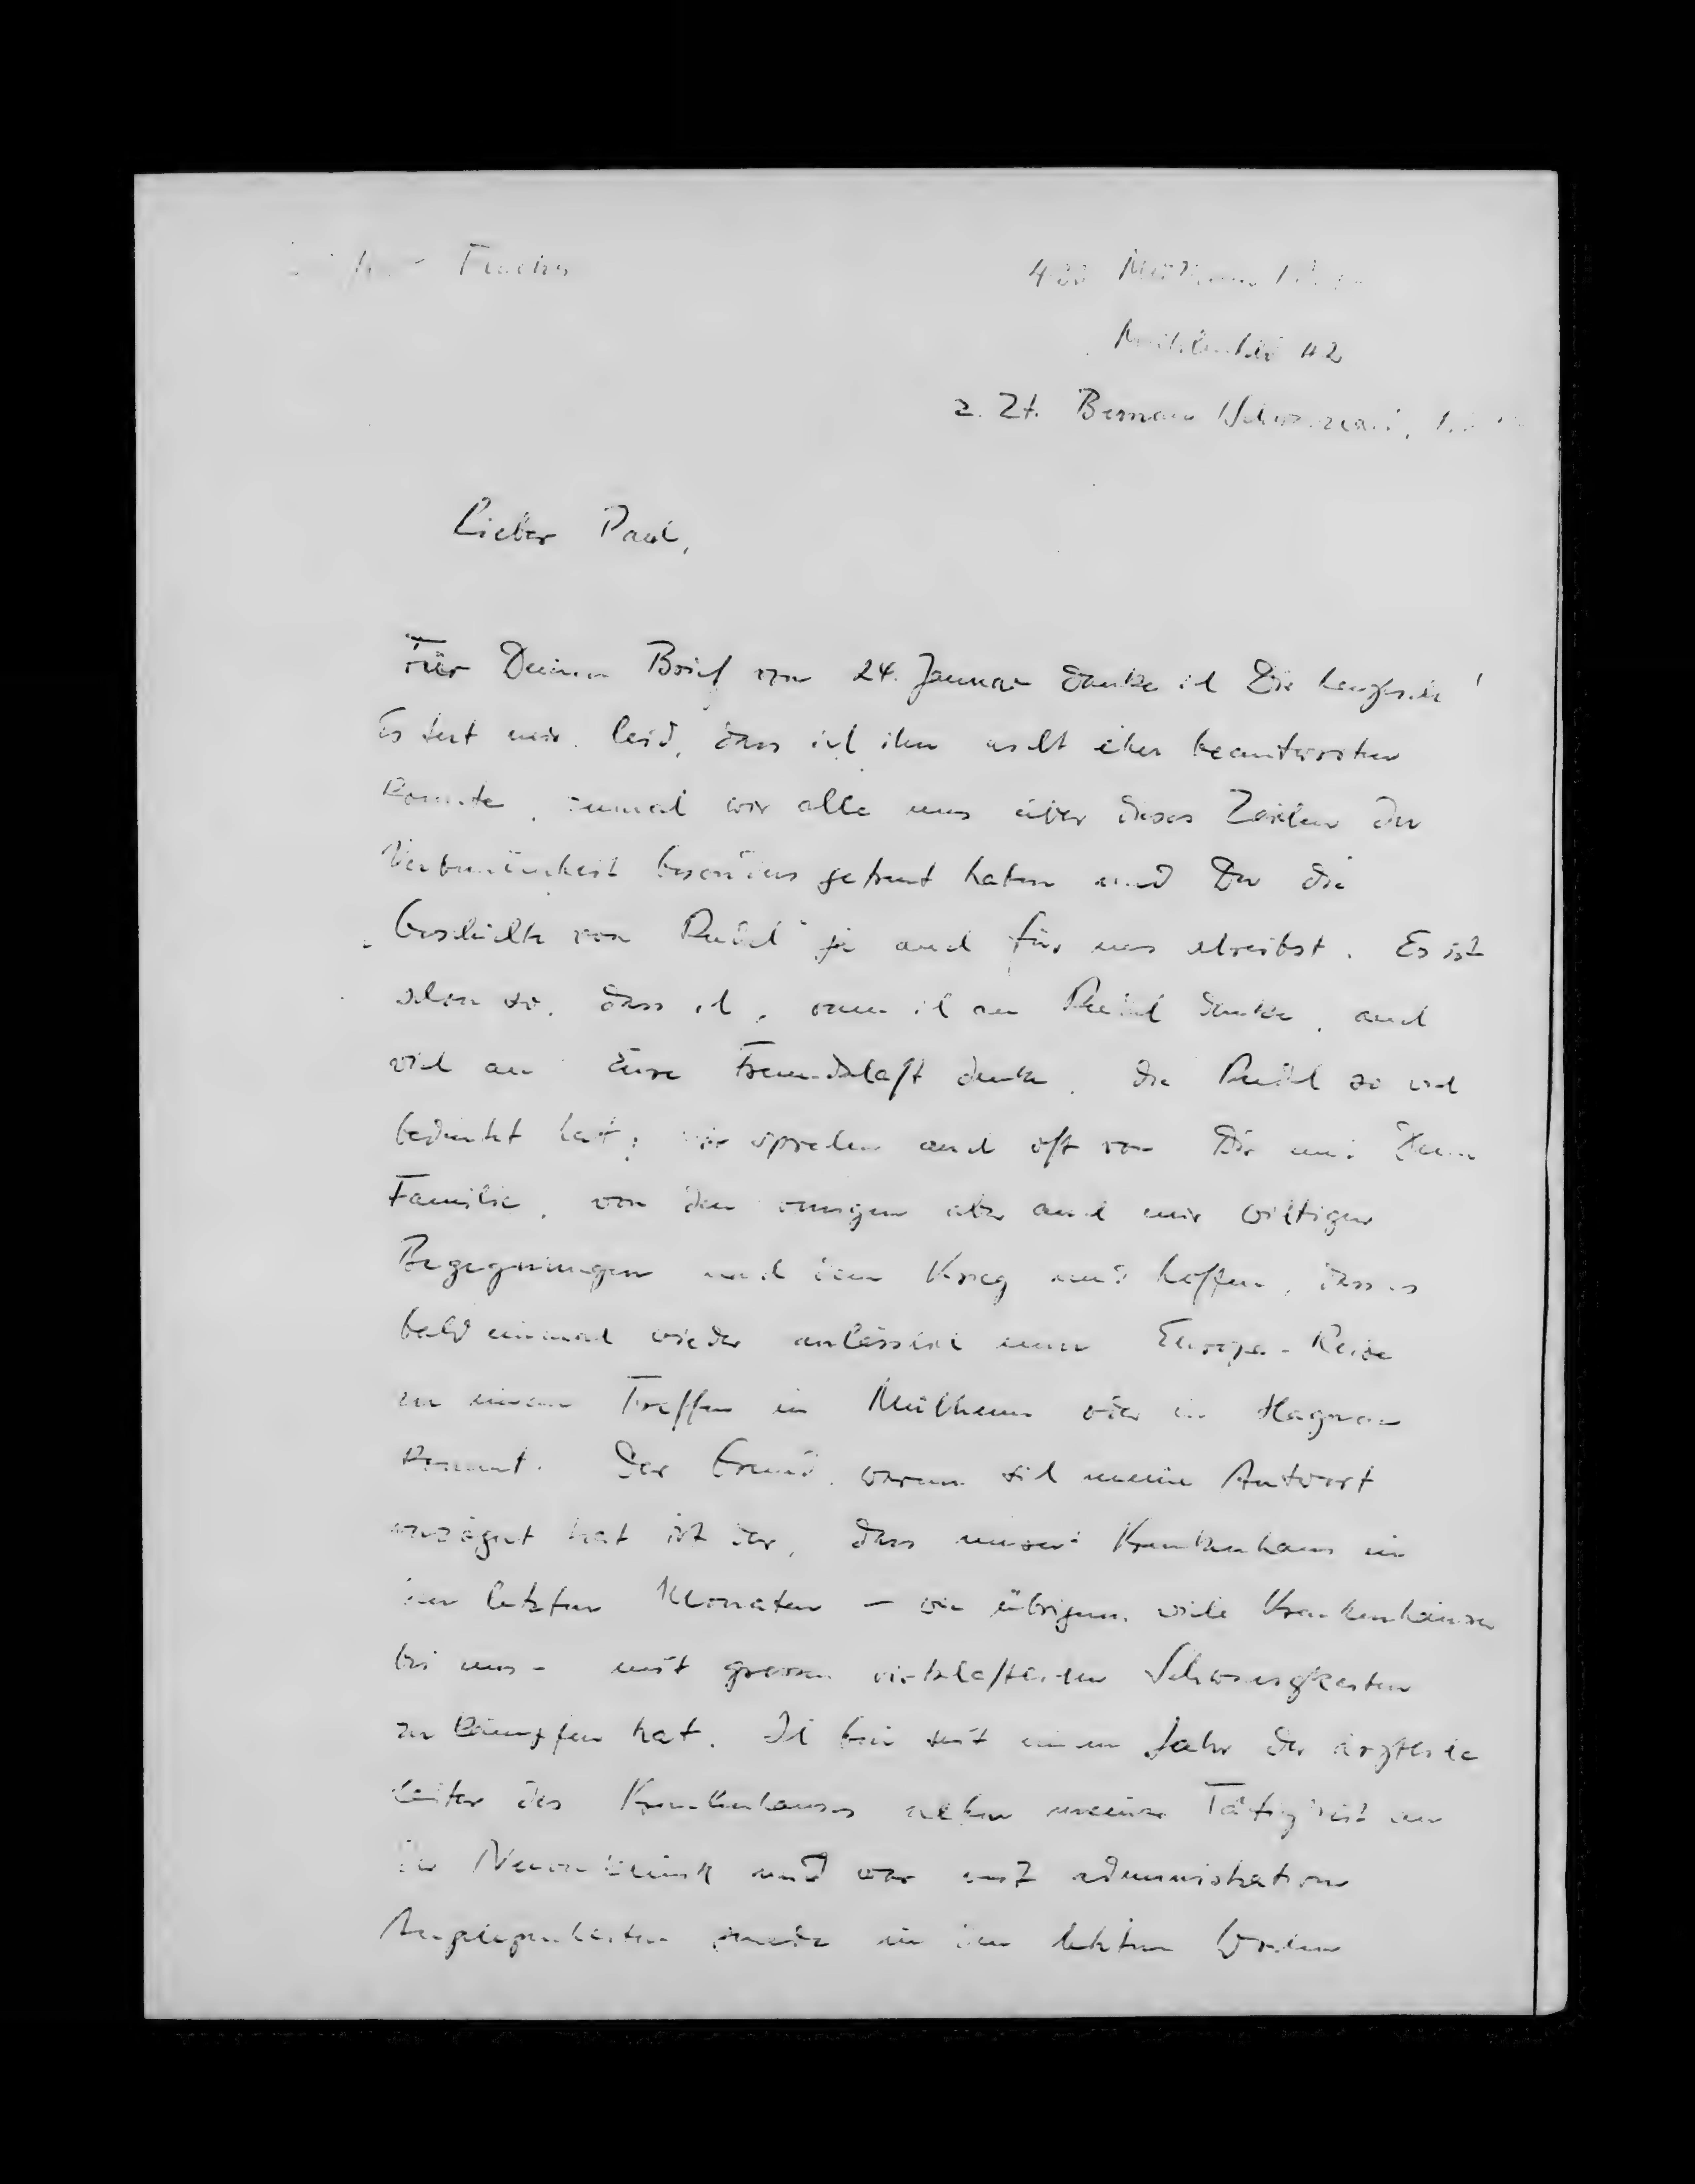 Fuchs
Mülheim
112
z. Zt. Bernau / Schwarzwald,
Lieber Paul,
Für Deinen Brief vom 24. Januar danke ich Dir herzlich!
Es tut mir leid, dass ich ihn nicht eher beantworten
konnte, zumal wir alle uns über dieses Zeichen der
Verbundenheit besonders gefreut haben und Du die
"Geschichte von Rudel" ja auch für uns schreibst. Es ist
schon so, dass ich, wenn ich an Rudel denke, auch
viel an Eure Freundschaft denke, die Rudel so viel
bedeutet hat; wir sprechen auch oft von Dir und Deiner
Familie, von den wenigen aber auch mir wichtigen
Begegnungen nach dem Krieg und hoffen, dass es
bald einmal wieder anlässlich einer Europa-Reise
zu einem Treffen in Mülheim oder in Hagnau
kommt. Der Grund, warum sich meine Antwort
verzögert hat ist der, dass unser Krankenhaus in
den letzten Monaten - wie übrigens viele Krankenhäuser
bei uns - mit grossen wirtschaftlichen Schwierigkeiten
zu kämpfen hat. Ich bin seit einem Jahr der ärztliche
Leiter des Krankenhauses neben meiner Tätigkeit an
der und war mit administrativen
Angelegenheiten gerade in den letzten Wochen